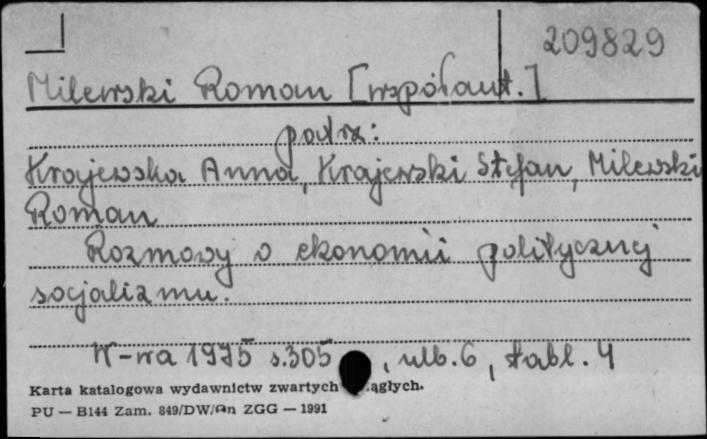 209829
Milewski Roman [współaut.]
podrz:
Krajewska Anna, Krajewski Stefan, Milewski
Roman
Rozmowy o ekonomii politycznej
socjalizmu.
W-wa 1975 s.305, nlb.6, tabl.4
Karta katalogowa wydawnictw zwartych ągłych.
PU — B144 Zam. 849/DW/An ZGG — 1991